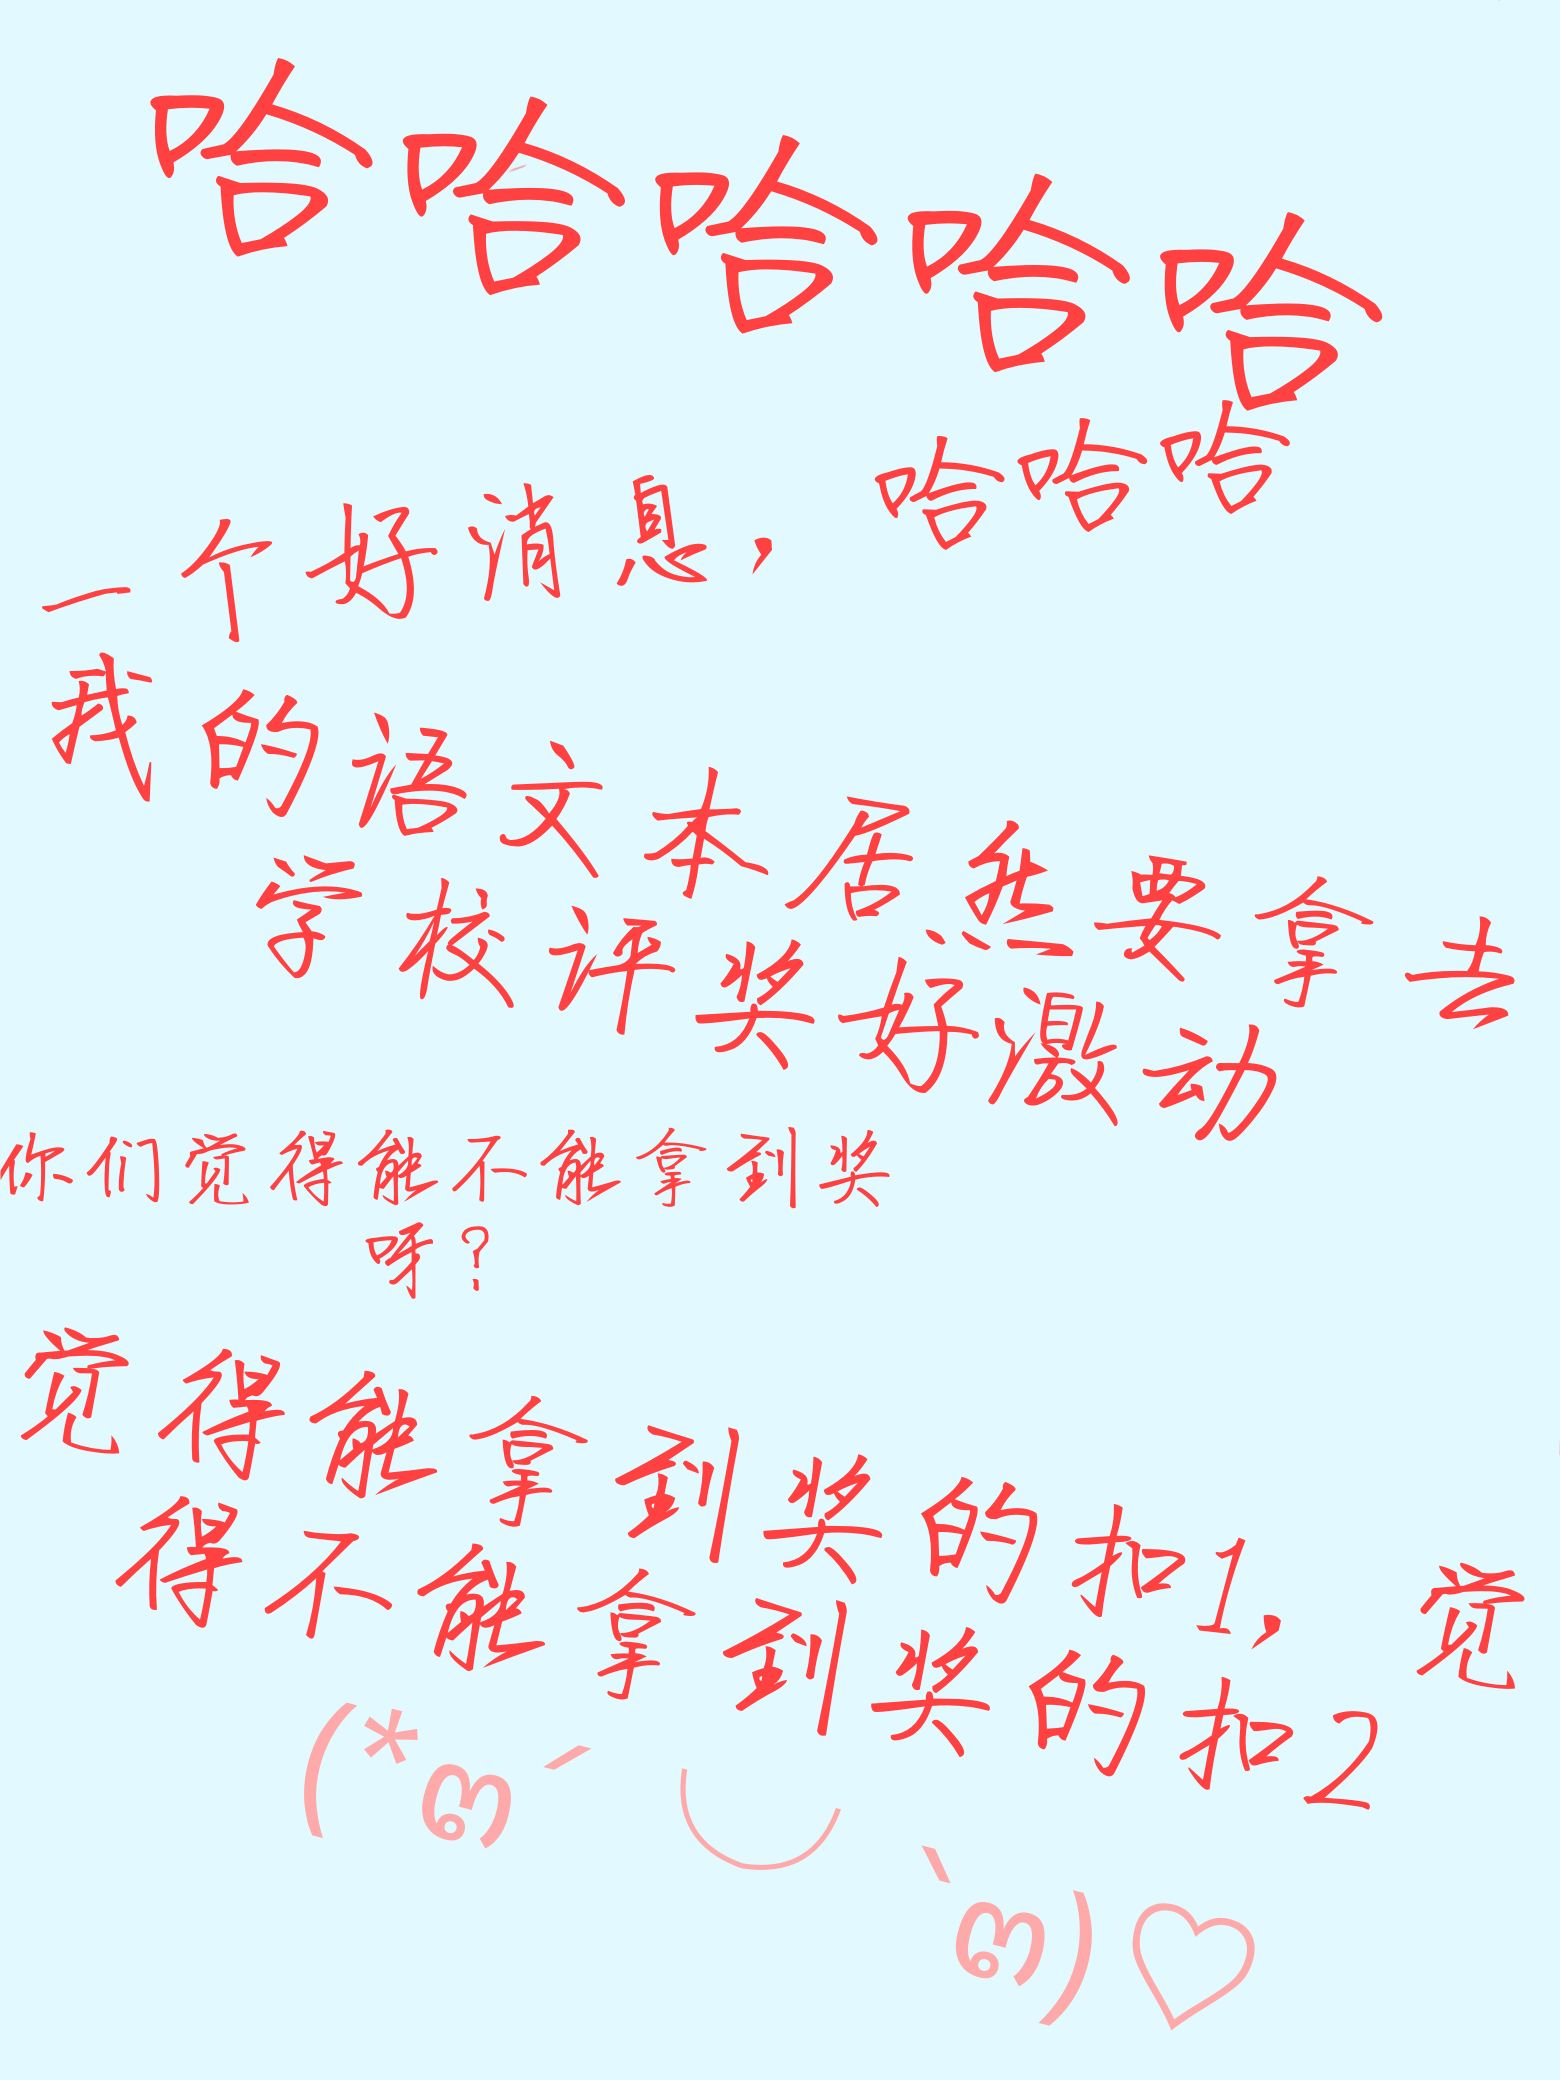 哈哈哈哈哈
一个好消息，哈哈哈
我的语文本居然要拿去
学校评奖好激动
你们觉得能不能拿到奖
呀？
觉得能拿到奖的扣1，觉
得不能拿到奖的扣2
(*൱´◡`൱)♡